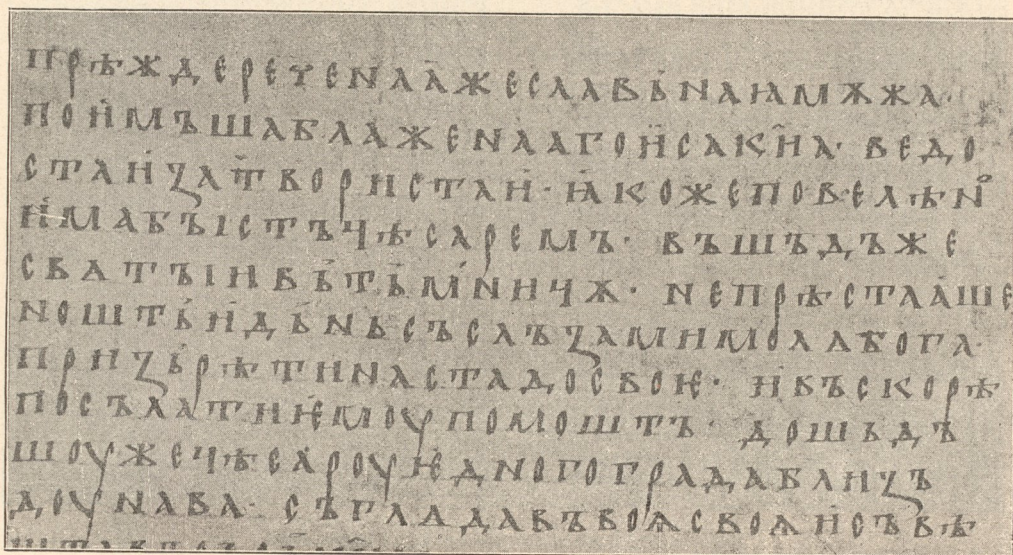 прѣждереченаа҄жеславь҄наꙗмѫжа·
пои҄мъшаблаженаагои҄сакиа· ведо
стаи҄ꙁатвористаи҄· ꙗ҄кожеповелѣно
и҄мабъістъцѣсаремъ· въшъдъже
свѧтъінвь҄ть҄мь҄ницѫ· непрѣстаа҄ше
ношть҄и҄дь҄ньсъслъꙁамимолѧбога·
приꙁь҄рѣтинастадосвоѥ· и҄въскорѣ
посълатиѥ҄моупомошть· дошьдъ
шоужецѣсароуѥ҄дногоградаблиꙁъ
доунава· съглѧдавъвоѩсвоѩи҄съвѣ